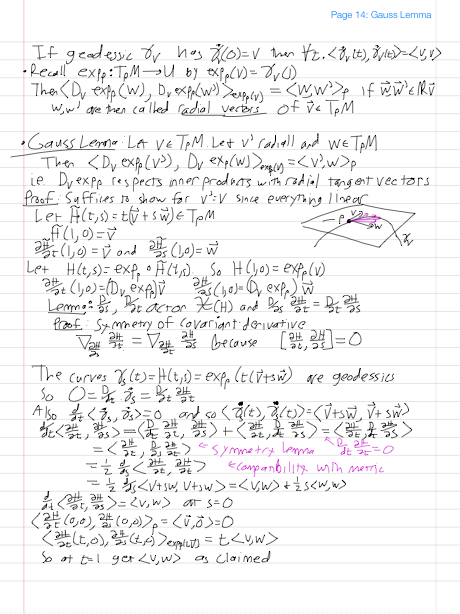 Page 14: Gauss Lemma
If geodesic γ_v has γ̇_v(0)=v then ∀t, <γ̇_v(t), γ̇_v(t)>=<v,v>
• Recall exp_p: T_pM → U by exp_p(v)=γ_v(1)
Then <D_v exp_p(w), D_v exp_p(w')>_{exp_p(v)} = <w,w'>_p if w⃗,w⃗'∈ℝv⃗
w,w' are then called radial vectors of v⃗∈T_pM
• Gauss Lemma: Let v∈T_pM. Let v' radial and w∈T_pM
Then <D_v exp_p(v'), D_v exp_p(w)>_{exp_p(v)}=<v',w>_p
i.e. D_v exp_p respects inner products with radial tangent vectors
Proof: Suffices to show for v'=v since everything linear
Let H̃(t,s)=t(v⃗+sw⃗)∈T_pM
H̃(1,0)=v⃗
∂H̃/∂t(1,0)=v⃗ and ∂H̃/∂s(1,0)=w⃗
p v w γ_v
Let H(t,s)=exp_p∘H̃(t,s). So H(1,0)=exp_p(v)
∂H/∂t(1,0)=(D_v exp_p)v⃗ ∂H/∂s(1,0)=(D_v exp_p)w⃗
Lemma: D/∂s, D/∂t act on 𝒳(H) and D/∂s ∂H/∂t = D/∂t ∂H/∂s
Proof: Symmetry of covariant derivative
∇_{∂H/∂s} ∂H/∂t = ∇_{∂H/∂t} ∂H/∂s because [∂H/∂t, ∂H/∂s]=0
The curves γ_s(t)=H(t,s)=exp_p(t(v⃗+sw⃗)) are geodesics
So 0=D/dt γ̇_s = D/dt ∂H/∂t
Also d/dt<γ̇_s, γ̇_s>=0 and so <γ̇_s(t), γ̇_s(t)>=<v⃗+sw⃗, v⃗+sw⃗>
d/dt<∂H/∂t, ∂H/∂s>=<D/dt ∂H/∂t, ∂H/∂s>+<∂H/∂t, D/dt ∂H/∂s>=<∂H/∂t, D/dt ∂H/∂s>
=<∂H/∂t, D/ds ∂H/∂t> ← Symmetry lemma D/dt ∂H/∂t=0
=½ d/ds<∂H/∂t, ∂H/∂t> ← compatibility with metric
=½ d/ds<v+sw, v+sw>=<v,w>+½s<w,w>
d/dt<∂H/∂t, ∂H/∂s>=<v,w> at s=0
<∂H/∂t(0,0), ∂H/∂s(0,0)>_p=<v⃗,0⃗>=0
<∂H/∂t(t,0), ∂H/∂s(t,0)>_{exp_p(tv)}=t<v,w>
So at t=1 get <v,w> as claimed